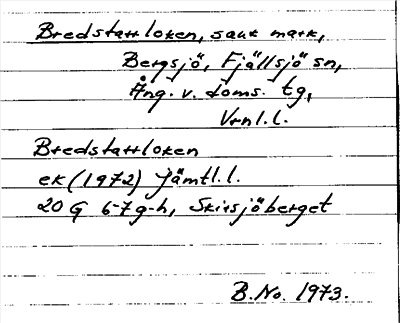 Bredstarrloken, sank mark,
Bergsjö, Fjällsjö sn,
Ång. v. doms. tg,
Vrnl.l.
Bredstarrloken
ek (1972) Jämtl.l.
20 G 6-7g-h, Skirsjöberget
B.No. 1973.